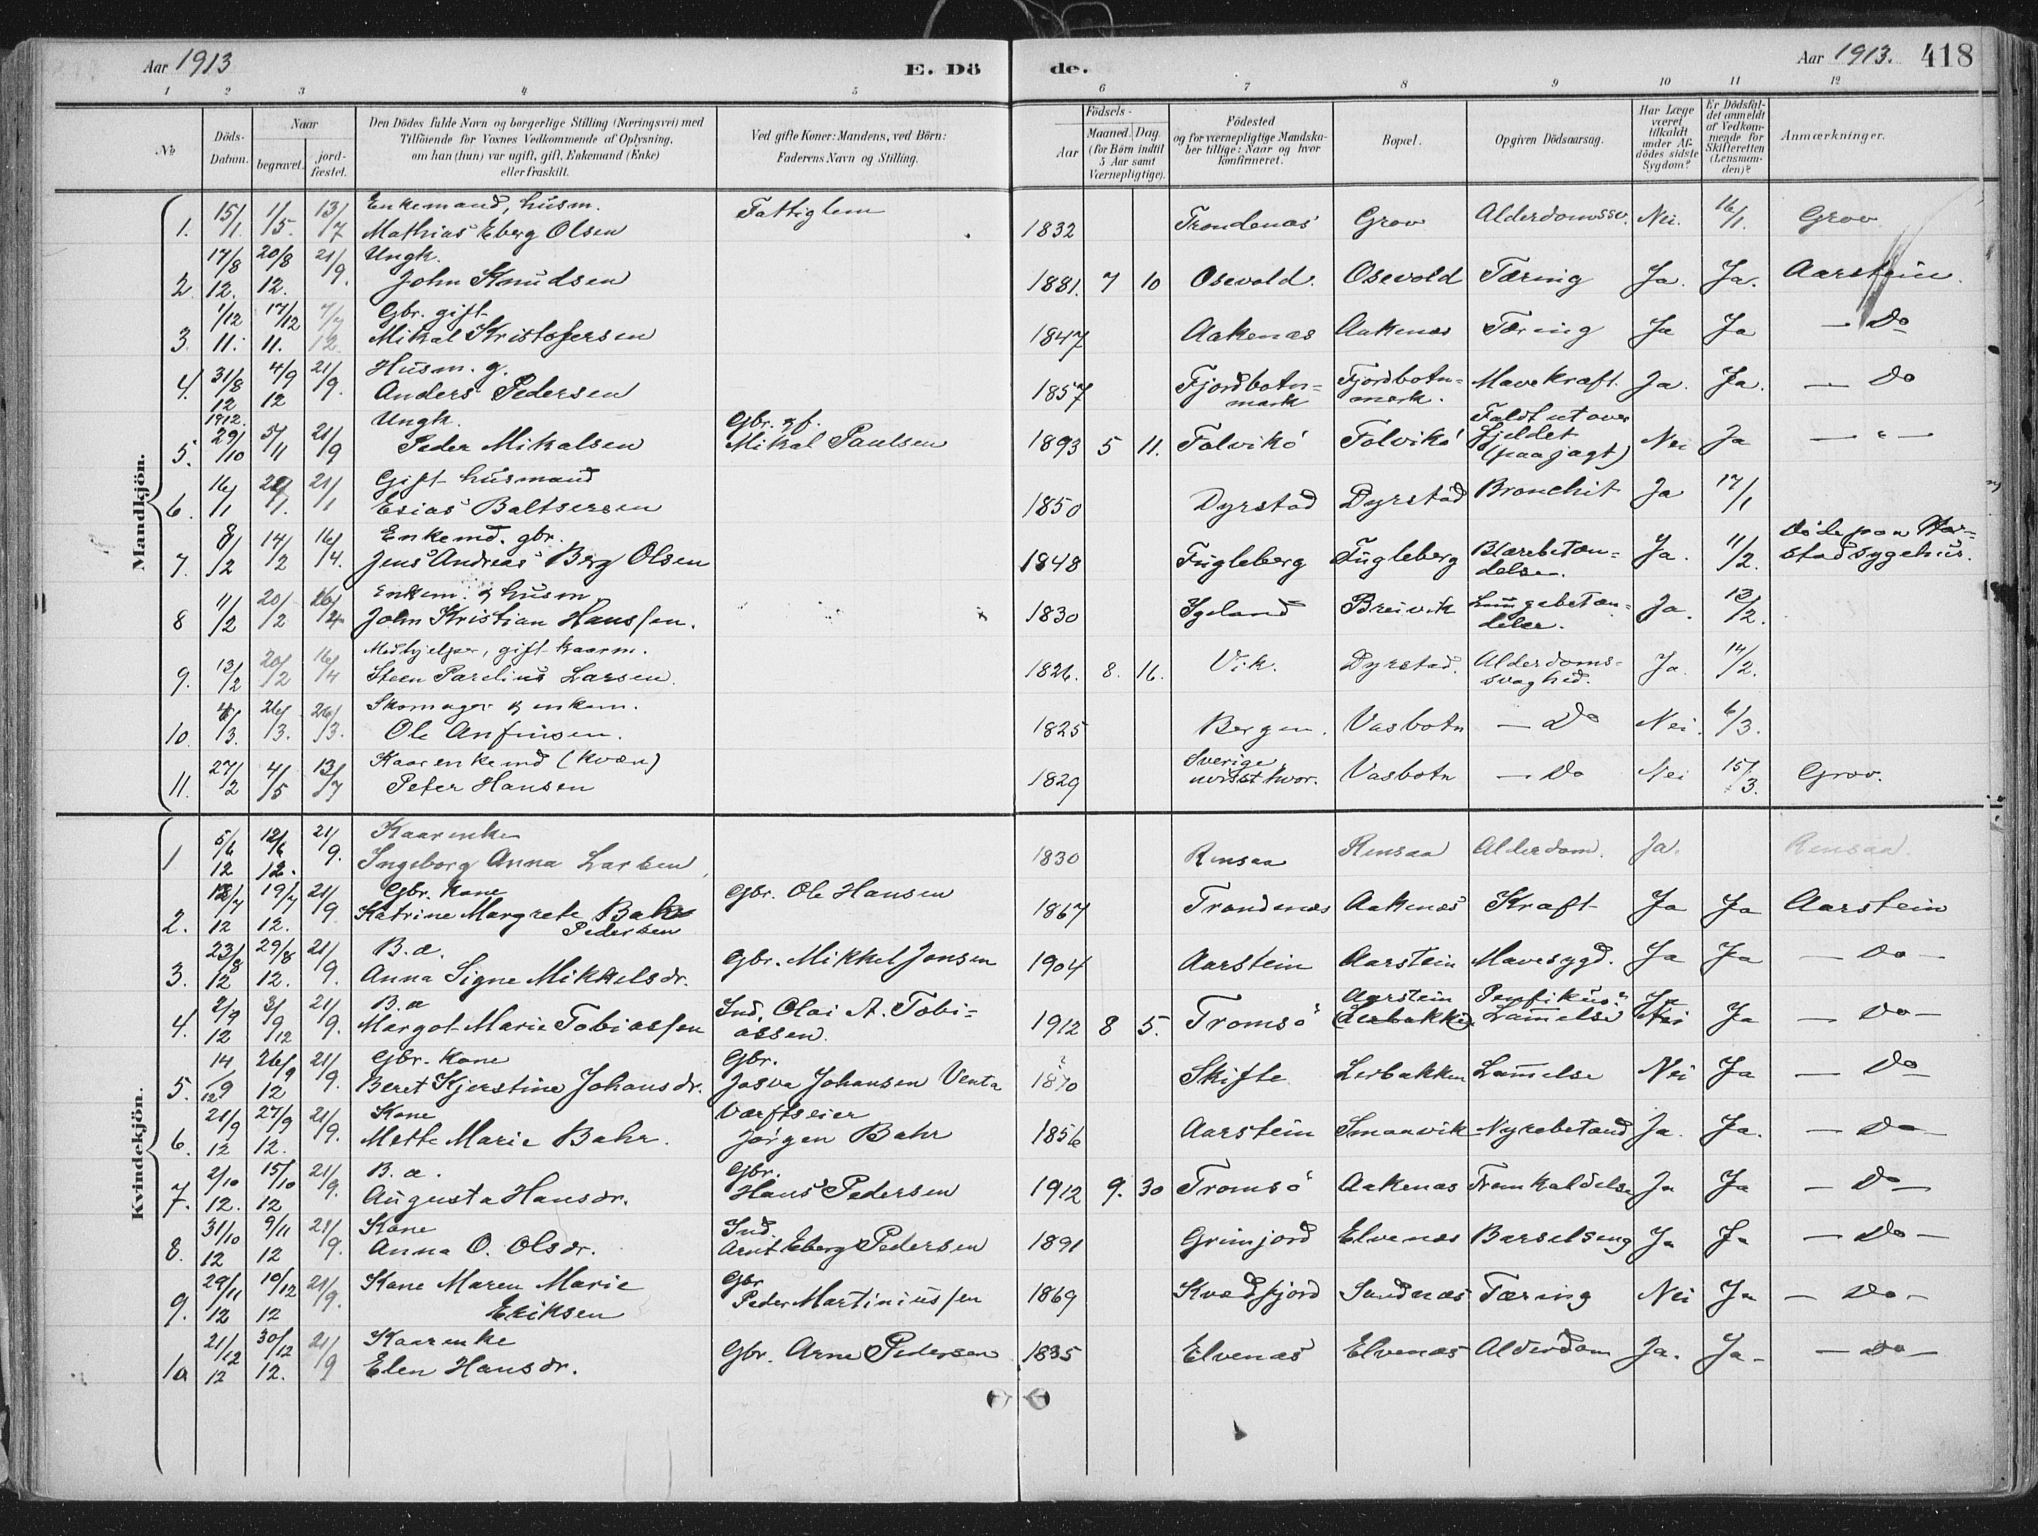 Aar 1913 E. Dö de. Aar 1913. 418
1 2 3 4 5 6 7 8 9 10 11 12
No
Döds-Datum.
Naar
begravet.
jordfæstet.
Den Dödes fulde Navn og borgerlige Stilling (Næringsvei) med
Tilföiende for Voxnes Vedkommende af Oplysning,
om han (hun) var ugift, gift, Enkemand (Enke)
eller fraskilt.
Ved gifte Koner: Mandens, ved Börn:
Faderens Navn og Stilling.
Födsels-
Aar Maaned. Dag.
(for Börn indtil
5 Aar samt
Værnepligtige).
Födested
og for værnepligtige Mandskaber tillige: Naar og hvor
konfirmeret.
Bopæl.
Opgiven Dödsaarsag.
Har Læge
været
tilkaldt
under Afdödes sidste
Sygdom?
Er Dödsfaldet anmeldt
af Vedkommende for
Skifteretten
(Lensmanden)?
Anmærkninger.
Mandkjön.
1. 15/1. 1/5. 13/7 Enkemand, husm. Mathias Eberg Olsen Fattiglem 1832 Trondenæs Grov Alderdomssv. Nei. 16/1. Grov
2 17/8 12. 20/8 12. 21/9. Ungk. John Knudsen 1881. 7 10 Osevold. Osevold Tæring Ja. Ja. Aarstein.
3. 1/12 11. 17/12 11. 7/7 12. Gbr. gift Mikal Kristofersen 1847 Aakenæs Aakenæs Tæring Ja Ja — Do
4. 31/8 12 4/9 12 21/9. Husm. g. Anders Pedersen 1857 Fjordbotnmark Fjordbotnmark. Mavekræft. Ja. Ja. — Do
5. 1912. 29/10 5/11 21/9 Ungk. Peder Mikalsen Gbr. gf. Mikal Paulsen 1893 5 11. Folvikö Folvikö Faldt ut over fjeldet (paa jagt) Nei Ja — " —
6. 16/1 21/1. 21/1 Gift husmand Esias Baltsersen 1850 Dyrstad Dyrstad Bronchit Ja 17/1
7. 8/2 14/2 16/4. Enkemd. gbr. Jens Andreas Berg Olsen 1848 Fugleberg Fugleberg Blærebetændelse. Ja. 11/2. Döde paa Harstad sygehus.
8 11/2 20/2 26/4 Enkem. & husm John Kristian Hanssen. 1830 Igeland Breivik Lungebetændelse. Ja. 13/2.
9. 13/2 20/2 16/4 Medhjelper, gift kaarm. Steen Parelius Larsen. 1826. 8. 16. Vik. Dyrstad. Alderdomssvaghed. Ja. 14/2.
10. 4/3. 26/3. 26/3. Skomager & enkem. Ole Anfinsen. 1825 Bergen. Vasbotn — Do Nei. 6/3.
11. 27/2 4/5 13/7 Kaarenkemd (kvæn) Peter Hansen 1829 Sverige, uvisst hvor. Vasbotn — Do Nei 15/3. Grov.
Kvindekjön.
1 5/6 12 12/6 12. 21/9. Kaarenke Ingeborg Anna Larsen 1830 Rensaa Rensaa Alderdom. Ja. Rensaa.
2. 13/7 12 19/7 12. 21/9 Gbr. kone Katrine Margrete Bahr Pedersen Gbr. Ole Hansen 1867 Trondenæs Aakenæs Kræft Ja Ja Aarstein
3. 23/8 12 29/8 12. 21/9. B. æ. Anna Signe Mikkelsdr. Gbr. Mikkel Jonsen 1904 Aarstein Aarstein Mavesygd. Ja Ja — Do —
4. 2/9 12 3/9 12 21/9. B. æ Margot Marie Tobiassen Ind. Olai A. Tobiassen. 1912 8 5. Tromsö Aarstein (Lerbakken) Pemfikus? Lammelse Ja Nei Ja — Do —
5. 14/9 12 26/9 12 21/9. Gbr. kone Beret Kjerstine Johansdr. Gbr. Josva Johansen Venta 1870 Skifte Lerbakken Lammelse Nei Ja — Do
6. 21/9 12 27/9 12. 21/9. Kone Mette Marie Bahr. Værftseier Jörgen Bahr 1856 Aarstein Smaavik Nyrebetænd Ja. Ja. — Do —
7. 2/10 12. 15/10 12 21/9. B. æ. Augusta Hansdr. Gbr. Hans Pedersen 1912 9. 30 Tromsö Aakenæs Fremkaldelse Ja Ja — Do —
8. 31/10 12 9/11 12 21/9. Kone Anna O. Olsdr. Ind. Arnt Eberg Pedersen 1891 Grimjord Elvenæs Barselseng Ja Ja — Do —
9. 29/11 12 10/12 12 21/9. Kone Maren Marie Eriksen Gbr Peder Martiniussen 1869 Kvedfjord Sandnæs Tæring Nei Ja — Do —
10 21/12 12 30/12 12. 21/9 Kaarenke Elen Hansdr. Gbr. Arne Pedersen 1835 Elvenæs Elvenæs Alderdom Ja. Ja — Do —